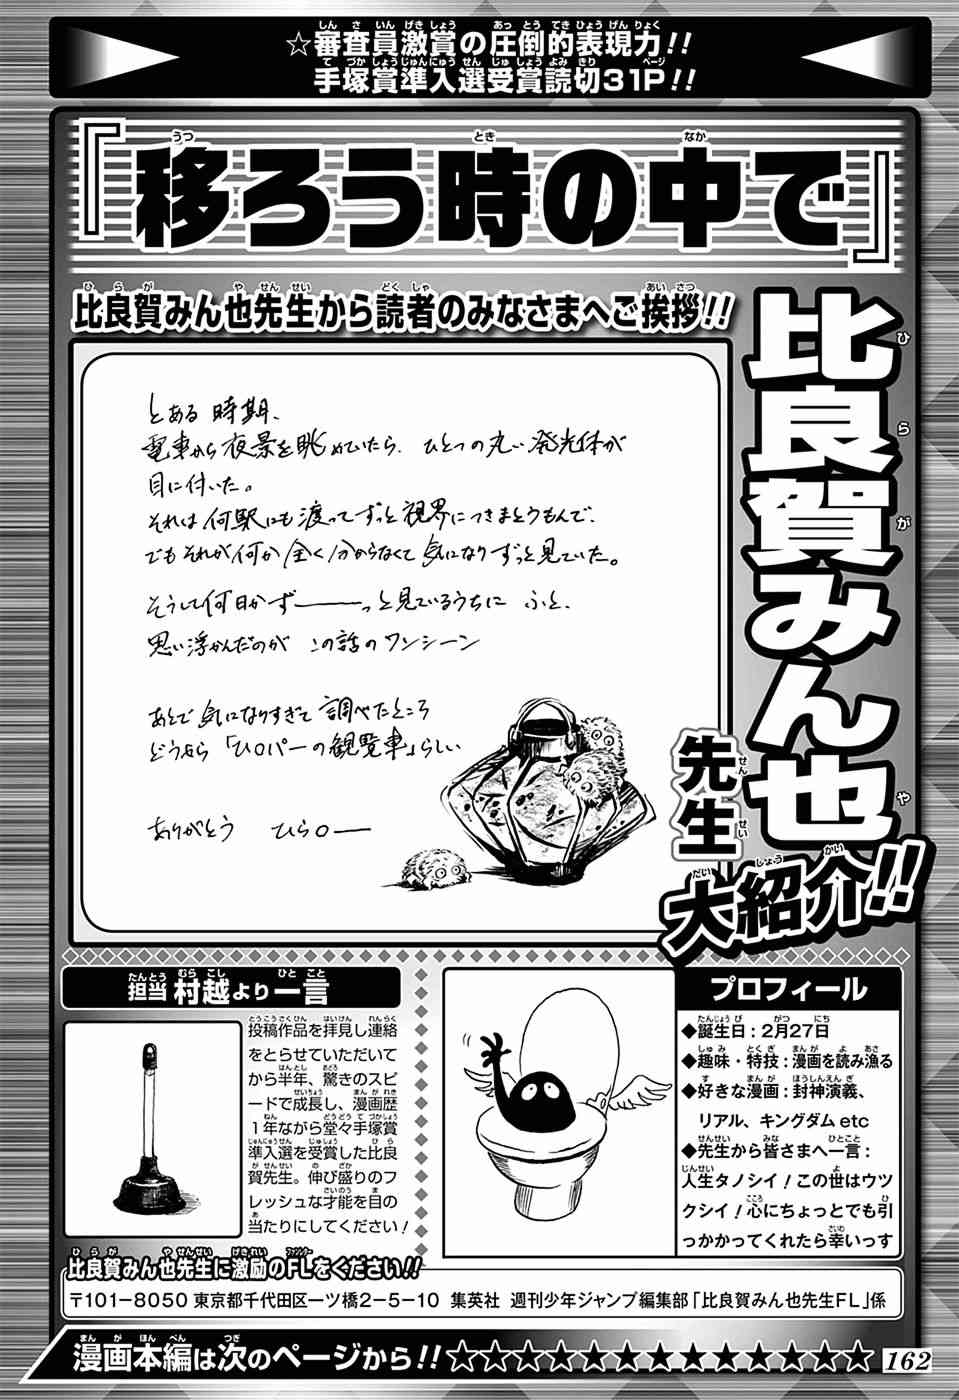 ☆審査員激賞の圧倒的表現力!!
手塚賞準入選受賞読切31P!!
『移ろう時の中で』
比良賀みん也先生から読者のみなさまへご挨拶!!
比良賀みん也
先生
大紹介!!
とある時期、
電車から夜景を眺めていたら、ひとつの丸い発光体が
目に付いた。
それは何駅にも渡ってずっと視界につきまとうもんで、
でもそれが何か全く分からなくて気になりずっと見ていた。
そうして何日かずーーーっと見ているうちに ふと、
思い浮かんだのが この話のワンシーン
あとで気になりすぎて調べたところ
どうやら「ひ○パーの観覧車」らしい
ありがとう ひら○ー
担当 村越より一言
投稿作品を拝見し連絡
をとらせていただいて
から半年、驚きのスピ
ードで成長し、漫画歴
1年ながら堂々手塚賞
準入選を受賞した比良
賀先生。伸び盛りのフ
レッシュな才能を目の
当たりにしてください!
プロフィール
◆誕生日:2月27日
◆趣味・特技:漫画を読み漁る
◆好きな漫画:封神演義、
リアル、キングダム etc
◆先生から皆さまへ一言:
人生タノシイ!この世はウツ
クシイ!心にちょっとでも引
っかかってくれたら幸いっす
比良賀みん也先生に激励のFLをください!!
〒101-8050 東京都千代田区一ツ橋2-5-10 集英社 週刊少年ジャンプ編集部「比良賀みん也先生FL」係
漫画本編は次のページから!!☆☆☆☆☆☆☆☆☆☆☆☆☆☆
162